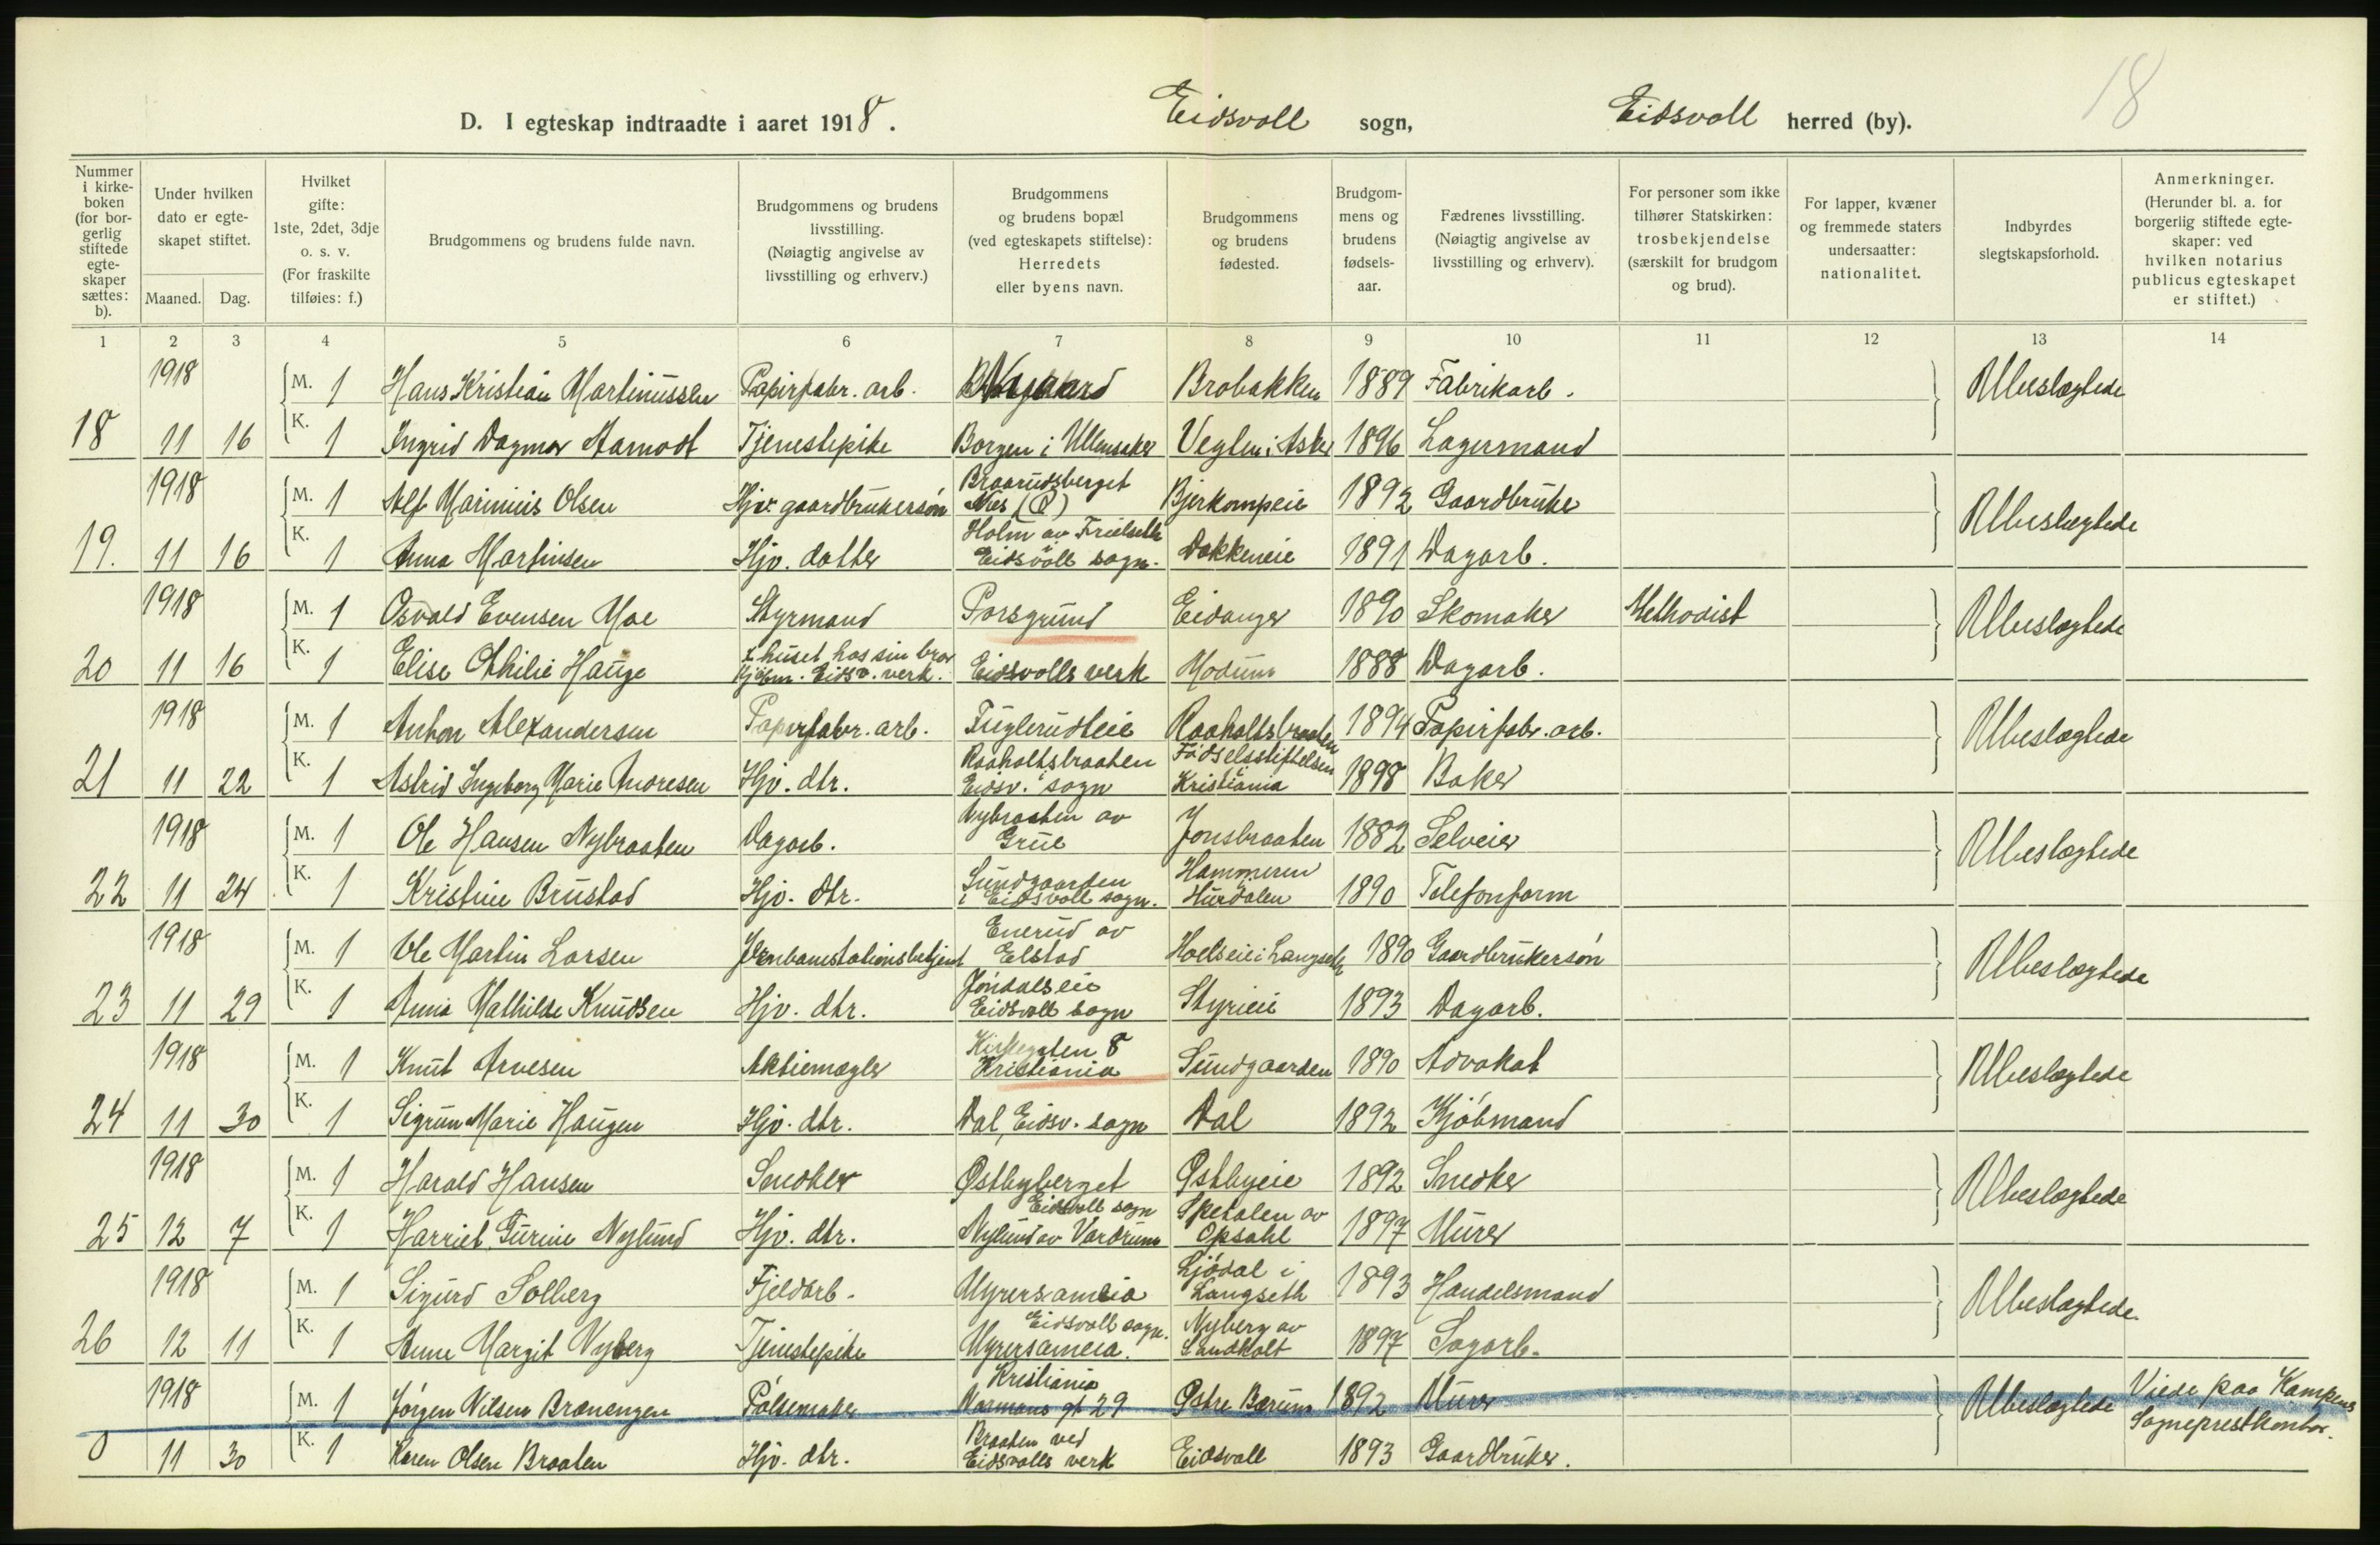 18
D. I egteskap indtraadte i aaret 1918. Eidsvoll sogn, Eidsvoll herred (by).
Nummer i kirkeboken (for borgerlig stiftede egteskaper sættes: b).
Under hvilken dato er egteskapet stiftet.
Maaned. Dag.
Hvilket gifte: 1ste, 2det, 3dje o. s. v. (For fraskilte tilføies: f.)
Brudgommens og brudens fulde navn.
Brudgommens og brudens livsstilling. (Nøiagtig angivelse av livsstilling og erhverv.)
Brudgommens og brudens bopæl (ved egteskapets stiftelse): Herredets eller byens navn.
Brudgommens og brudens fødested.
Brudgommens og brudens fødselsaar.
Fædrenes livsstilling. (Nøiagtig angivelse av livsstilling og erhverv).
For personer som ikke tilhører Statskirken: trosbekjendelse (særskilt for brudgom og brud).
For lapper, kvæner og fremmede staters undersaatter: nationalitet.
Indbyrdes slegtskapsforhold.
Anmerkninger. (Herunder bl. a. for borgerlig stiftede egteskaper: ved hvilken notarius publicus egteskapet er stiftet.)
1 2 3 4 5 6 7 8 9 10 11 12 13 14
1918 M. 1 Hans Kristian Martinussen Papirfabr. arb. Brobakken 1889 Fabrikarb. Ubeslægtede
18 11 16 K. 1 Ingrid Dagmar Aamodt Tjenestepike Borgen i Ullensaker Veglen i Asker 1896 Lagermand
1918 M. 1 Alf Marinius Olsen Hjv. gaardbrukersøn Braarudsberget Nes (R) Bjerkompeie 1892 Gaardbruker Ubeslægtede
19. 11 16 K. 1 Anna Martinsen Hjv. datter Holm av Frilseth Eidsvoll sogn. Dokkeneie 1891 Dagarb.
1918 M. 1 Osvald Evensen Moe Styrmand Porsgrund Eidanger 1890 Skomaker Methodist Ubeslægtede
20 11 16 K. 1 Elise Othilie Hauge I huset hos sin bror Kjøbm. Eidsv. verk. Eidsvolls verk Modum 1888 Dagarb.
1918 M. 1 Anton Alexandersen Papirfabr. arb. Fuglerudeie Raaholtsbraaten 1894 Papirfabr. arb. Ubeslægtede
21 11 22 K. 1 Astrid Ingeborg Marie Andresen Hjv. dtr. Raaholtsbraaten Eidsv. sogn Fødselsstiftelsen Kristiania 1898 Baker
1918 M. 1 Ole Hansen Nybraaten Dagarb. Nybraaten av Grue Jonsbraaten 1882 Selveier Ubeslægtede
22 11 24 K. 1 Kristine Brustad Hjv. dtr. Sundgaarden i Eidsvoll sogn. Hammeren Hurdalen 1890 Telefonform
1918 M. 1 Ole Martin Larsen Jernbanestationsbetjent Enerud av Elstad Hoelseie i Langseth 1890 Gaardbrukersøn Ubeslægtede
23 11 29 K. 1 Anna Mathilde Knudsen Hjv. dtr. Jøndalseie Eidsvoll sogn Styrieie 1893 Dagarb.
1918 M. 1 Knut Arvesen Aktiemægler Kirkegaten 8 Kristiania Sundgaarden 1890 Advokat Ubeslægtede
24 11 30 K. 1 Sigrun Marie Haugen Hjv. dtr. Dal, Eidsv. sogn Dal 1892 Kjøbmand
1918 M. 1 Harald Hansen Snedker Østbyberget Østbyeie 1892 Snedker Ubeslægtede
25 12 7 K. 1 Harriet Gurine Nylund Hjv. dtr. Eidsvoll sogn Nylund av Vardrum Spetalen av Opsahl 1897 Murer
1918 M. 1 Sigurd Solberg Fjeldarb. Myrersameia Ljødal i Langseth 1893 Handelsmand Ubeslægtede.
26 12 11 K. 1 Anne Margit Nyberg Tjenestepike Eidsvoll sogn. Myrersameia. Nyberg av Sandholt 1897 Sagarb.
1918 M. 1 Jørgen Nilsen Brænengen Pølsemaker Kristiania Normans gt 29 Østre Bærum 1892 Murer Ubeslægtede Viede paa Kampens Sogneprestkontor.
0 11 30 K. 1 Karen Olsen Braaten Hjv. dtr. Braaten ved Eidsvolls verk Eidsvoll 1893 Gaardbruker.